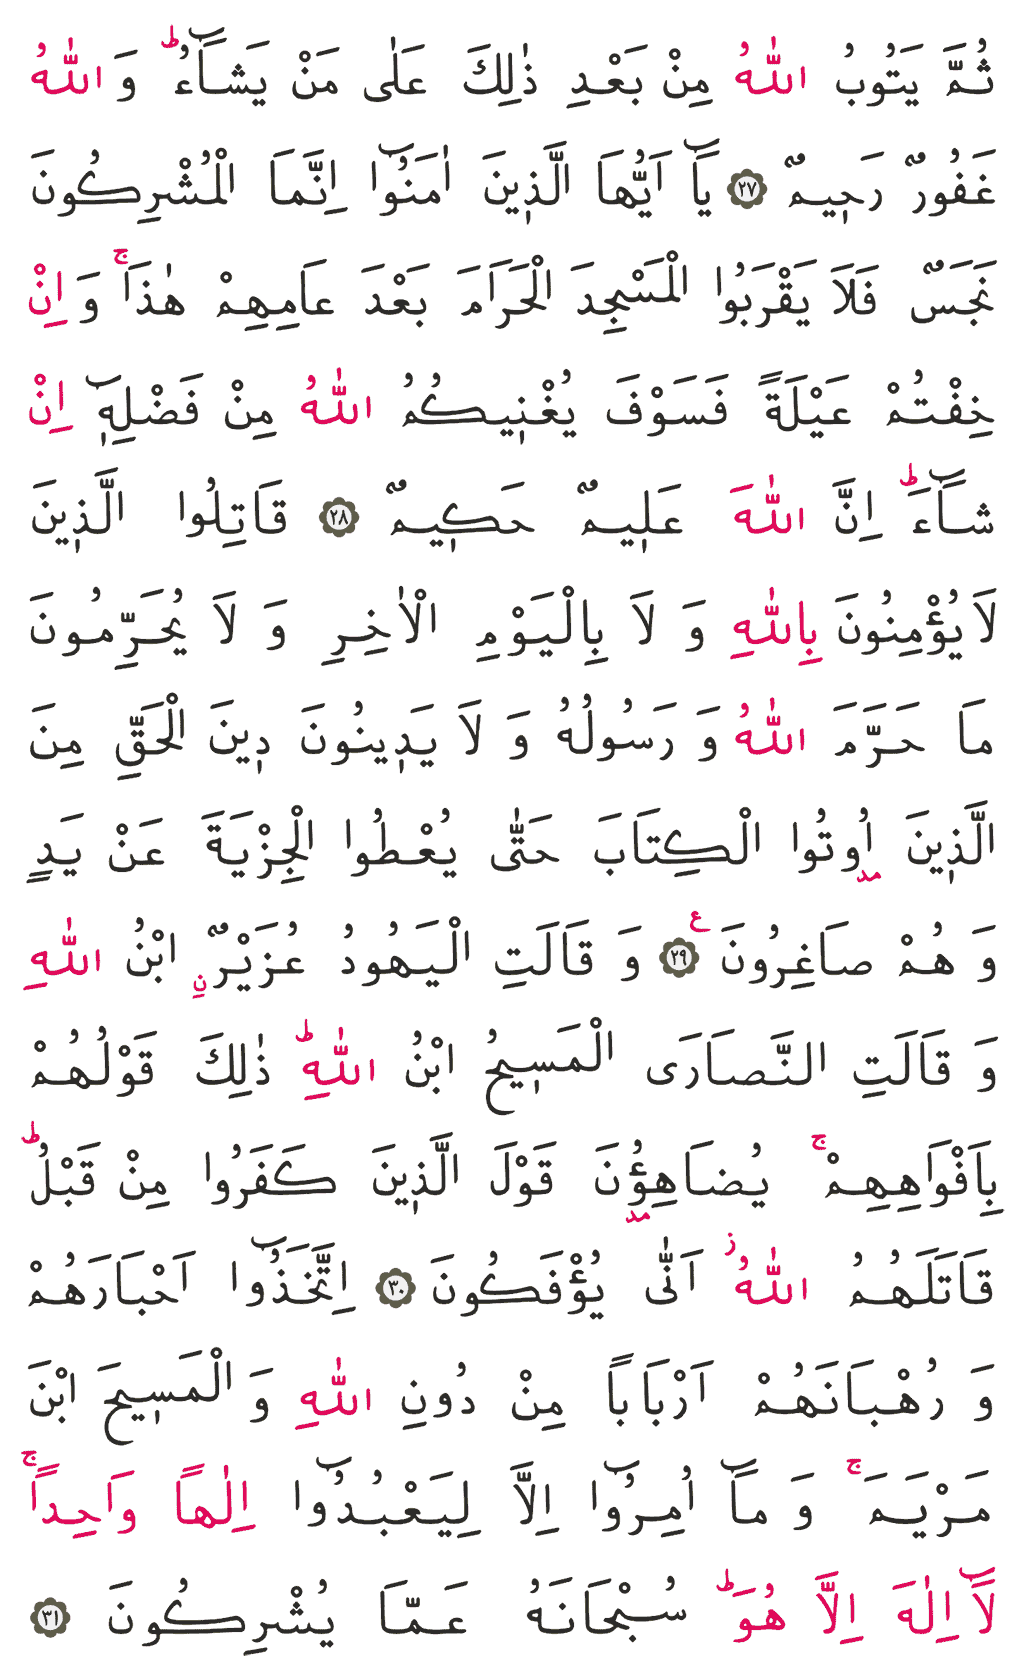 ثُمَّ يَتُوبُ اللّٰهُ مِنْ بَعْدِ ذٰلِكَ عَلٰى مَنْ يَشَٓاءُۜ وَ اللّٰهُ
غَفُورٌ رَح۪يمٌ ﴿٢٧﴾ يَٓا اَيُّهَا الَّذ۪ينَ اٰمَنُٓوا اِنَّمَا الْمُشْرِكُونَ
نَجَسٌ فَلَا يَقْرَبُوا الْمَسْجِدَ الْحَرَامَ بَعْدَ عَامِهِمْ هٰذَاۚ وَ اِنْ
خِفْتُمْ عَيْلَةً فَسَوْفَ يُغْن۪يكُمُ اللّٰهُ مِنْ فَضْلِه۪ٓ اِنْ
شَٓاءَۜ اِنَّ اللّٰهَ عَل۪يمٌ حَك۪يمٌ ﴿٢٨﴾ قَاتِلُوا الَّذ۪ينَ
لَا يُؤْمِنُونَ بِاللّٰهِ وَ لَا بِالْيَوْمِ الْاٰخِرِ وَ لَا يُحَرِّمُونَ
مَا حَرَّمَ اللّٰهُ وَ رَسُولُهُ وَ لَا يَد۪ينُونَ د۪ينَ الْحَقِّ مِنَ
الَّذ۪ينَ اُو۫تُوا الْكِتَابَ حَتّٰى يُعْطُوا الْجِزْيَةَ عَنْ يَدٍ
وَ هُمْ صَاغِرُونَ ﴿٢٩﴾ وَ قَالَتِ الْيَهُودُ عُزَيْرٌۨ ابْنُ اللّٰهِ
وَ قَالَتِ النَّصَارَى الْمَس۪يحُ ابْنُ اللّٰهِۜ ذٰلِكَ قَوْلُهُمْ
بِاَفْوَاهِهِمْۚ يُضَاهِؤُ۫نَ قَوْلَ الَّذ۪ينَ كَفَرُوا مِنْ قَبْلُۜ
قَاتَلَهُمُ اللّٰهُۘ اَنّٰى يُؤْفَكُونَ ﴿٣٠﴾ اِتَّخَذُٓوا اَحْبَارَهُمْ
وَ رُهْبَانَهُمْ اَرْبَابًا مِنْ دُونِ اللّٰهِ وَ الْمَس۪يحَ ابْنَ
مَرْيَمَۚ وَ مَٓا اُمِرُٓوا اِلَّا لِيَعْبُدُٓوا اِلٰهًا وَاحِدًاۚ
لَٓا اِلٰهَ اِلَّا هُوَۜ سُبْحَانَهُ عَمَّا يُشْرِكُونَ ﴿٣١﴾